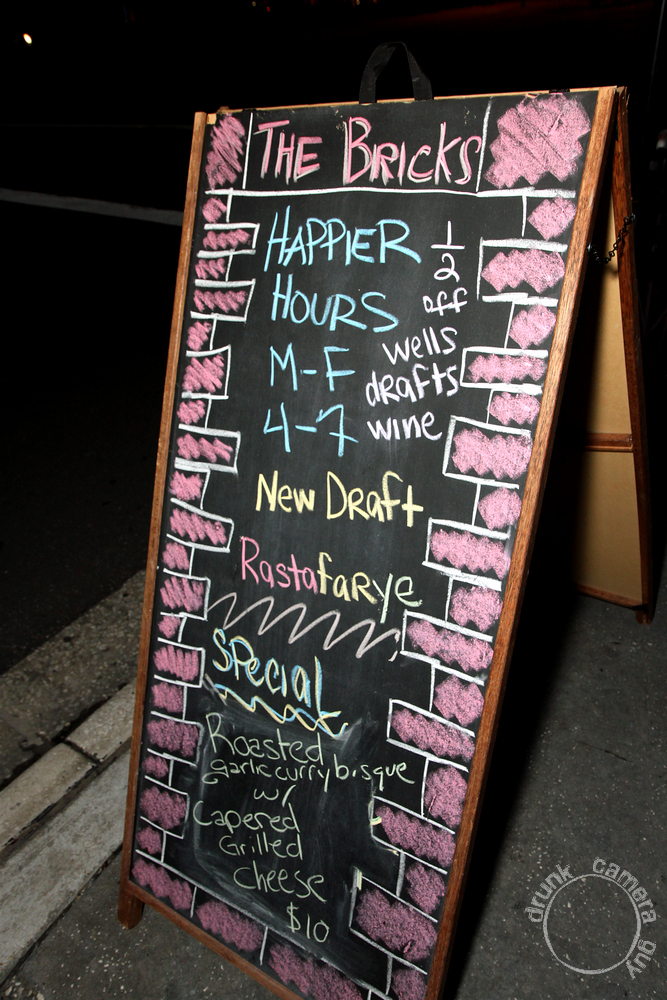 THE BRICKS
HAPPIER
HOURS
M-F
4-7
1/2
off
wells
drafts
wine
New Draft
Rastafarye
Special
Roasted
garlic curry bisque
w/
Capered
Grilled
cheese
$10
drunk camera guy